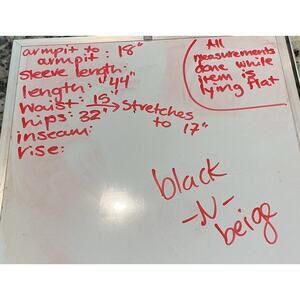 armpit to
armpit: 18"
sleeve length:
length: "44"
waist: 15 → stretches
to 17"
hips: 32"
inseam:
rise:
All
measurements
done while
item is
lying flat
black
-N-
beige